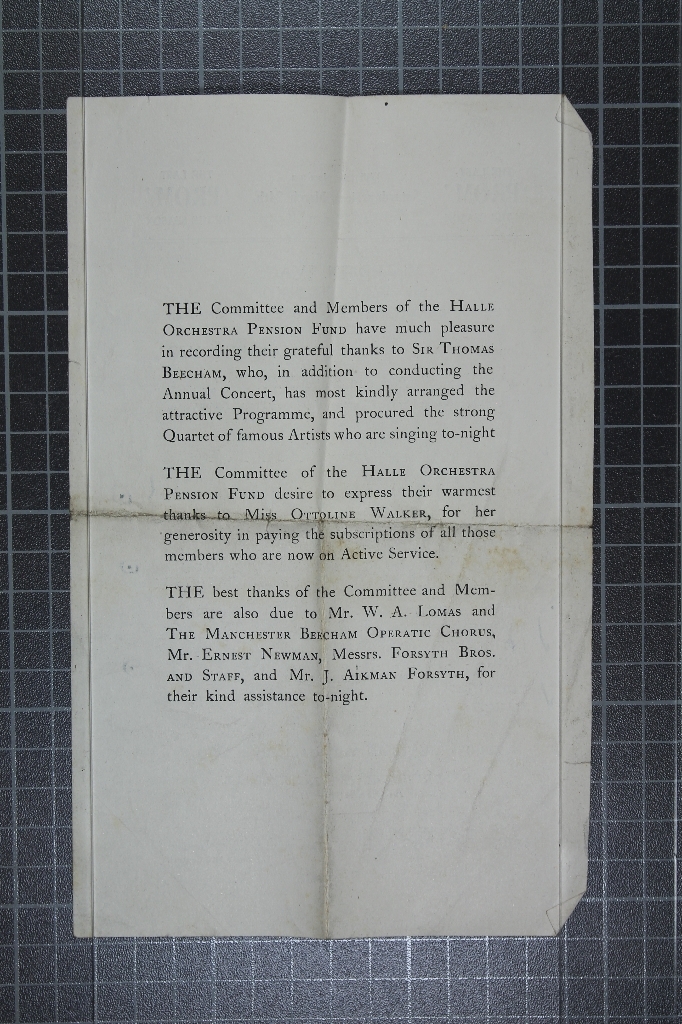 THE Committee and Members of the HALLE
ORCHESTRA PENSION FUND have much pleasure
in recording their grateful thanks to SIR THOMAS
BEECHAM, who, in addition to conducting the
Annual Concert, has most kindly arranged the
attractive Programme, and procured the strong
Quartet of famous Artists who are singing to-night
THE Committee of the HALLE ORCHESTRA
PENSION FUND desire to express their warmest
thanks to Miss OTTOLINE WALKER, for her
generosity in paying the subscriptions of all those
members who are now on Active Service.
THE best thanks of the Committee and Mem-
bers are also due to Mr. W. A. LOMAS and
THE MANCHESTER BEECHAM OPERATIC CHORUS,
Mr. ERNEST NEWMAN, Messrs. FORSYTH BROS.
AND STAFF, and Mr. J. AIKMAN FORSYTH, for
their kind assistance to-night.